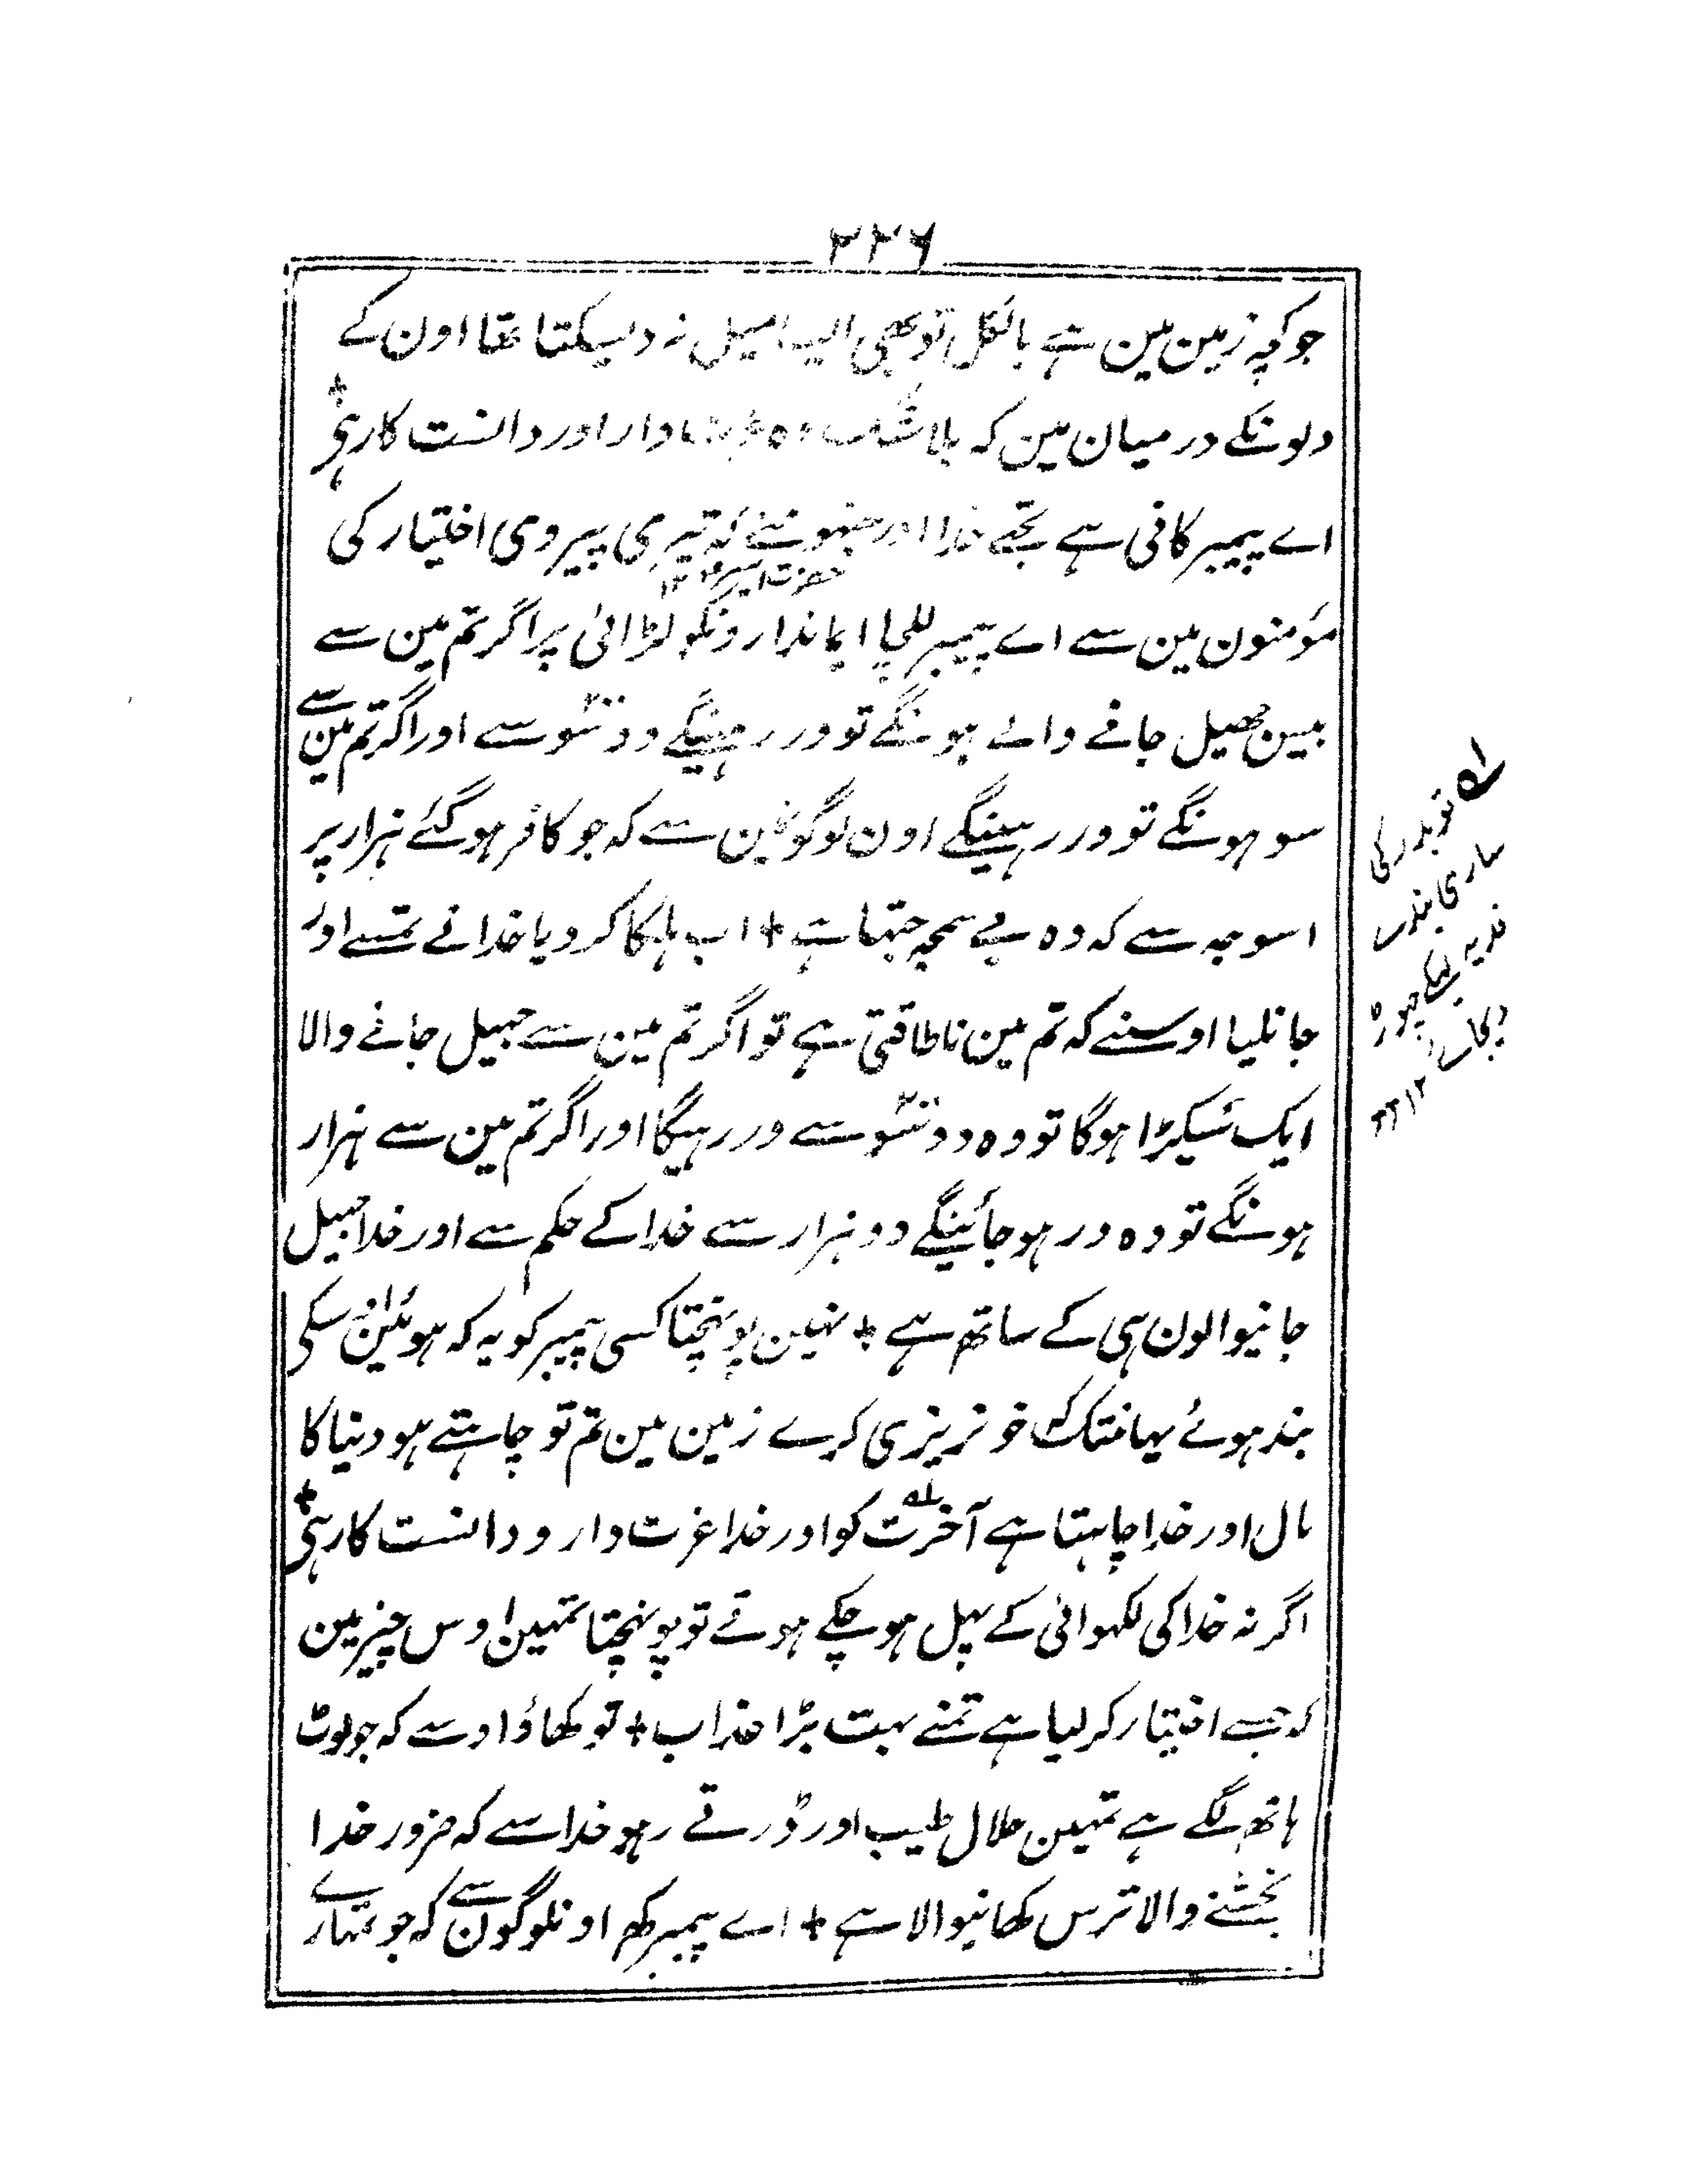 ۲۲۶
جو کچہ زمین مین ہے بالکل تو بھی ایسا میل نہ دیسکتا تھا اون کے
دلونکے درمیان مین کہ بلاشک وہ عزت دار اور دانست کار ہی +
اے پیمبر کافی ہے تجھے خدا اور جنہوننے کہ تیری پیروی اختیار کی
حضرت امیر ۱۲
مؤمنون مین سے اے پیمبر للچا ایماندارونکو لڑائی پر اگر تم مین سے
بیس جھیل جانے والے ہونگے تو ور رہینگے دو سو سے اور اگر تم مین سے
سو ہونگے تو ور رہینگے اون لوگونمین سے کہ جو کافر ہوگئے ہزار پر
اسوجہ سے کہ وہ بے سمجہ جتہا ہے + اب ہلکا کر دیا خدا نے تمسے اور
جانلیا اوسنے کہ تم مین ناطاقتی ہے تو اگر تم مین سے جہیل جانے والا
ایک سیکڑا ہوگا تو وہ دو سو سے ور رہیگا اور اگر تم مین سے ہزار
ہونگے تو وہ ور ہو جائینگے دو ہزار سے خدا کے حکم سے اور خدا جہیل
جانیوالون ہی کے ساتھ ہے + نہین پونہچتا کسی پیمبر کو یہ کہ ہوئین اوسکی
بند ہوئے یہانتک کہ خونریزی کرے زمین مین تم تو چاہتے ہو دنیا کا
مال اور خدا چاہتا ہے آخرت کو اور خدا عزت دار و دانست کار ہی +
اگر نہ خدا کی لکھوائی کے پہل ہو چکے ہوتے تو پونہچتا تمہین اوس چیز مین
کہ جسے اختیار کر لیا ہے تمنے بہت بڑا عذاب + تو کھاؤ اوسے کہ جو لوٹ
ہاتھ لگے ہے تمہین حلال طیب اور ڈرتے رہو خدا سے کہ ضرور خدا
بخشنے والا ترس کھانیوالا ہے + اے پیمبر کہہ اونلوگون سے کہ جو تمہارے
لہ تو بدر کی
ساری بندر
فدیہ لیکے چھوڑ
دیجاے ۱۲